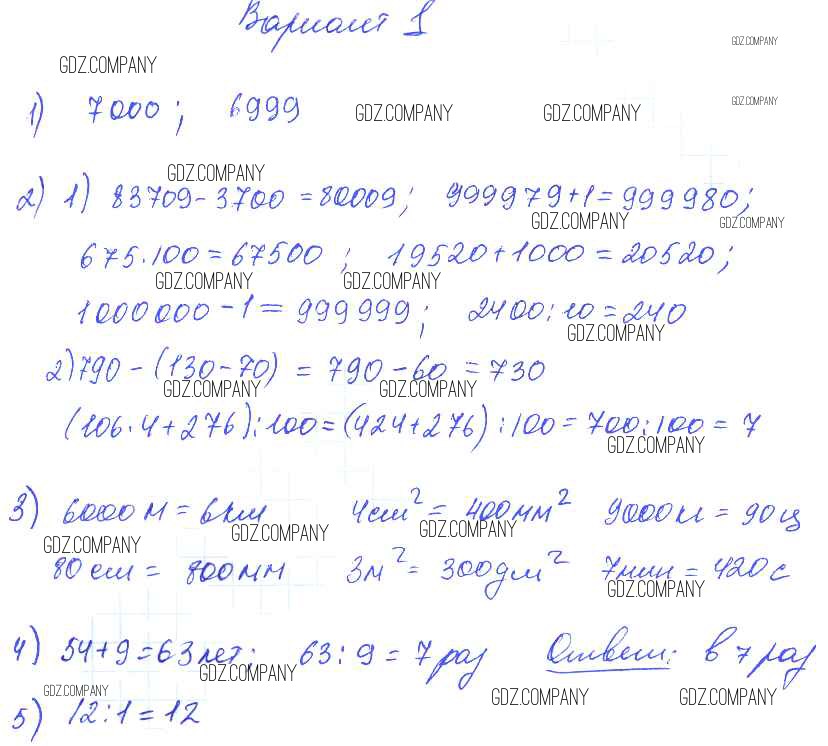 Вариант 1
GDZ.COMPANY
GDZ.COMPANY
1) 7000; 6999 GDZ.COMPANY GDZ.COMPANY GDZ.COMPANY
GDZ.COMPANY
2) 1) 83709-3700=80009; 999979+1=999980;
GDZ.COMPANY GDZ.COMPANY
675·100=67500; 19520+1000=20520;
GDZ.COMPANY GDZ.COMPANY
1000000-1=999999; 2400:10=240
GDZ.COMPANY
2) 790-(130-70)=790-60=730
GDZ.COMPANY GDZ.COMPANY
(106·4+276):100=(424+276):100=700:100=7
GDZ.COMPANY
3) 6000м=6км 4см²=400мм² 9000кг=90ц
GDZ.COMPANY GDZ.COMPANY GDZ.COMPANY
80см=800мм 3м²=300дм² 7мин=420с
GDZ.COMPANY
4) 54+9=63лет; 63:9=7раз Ответ: в 7 раз
GDZ.COMPANY
GDZ.COMPANY GDZ.COMPANY GDZ.COMPANY
5) 12:1=12